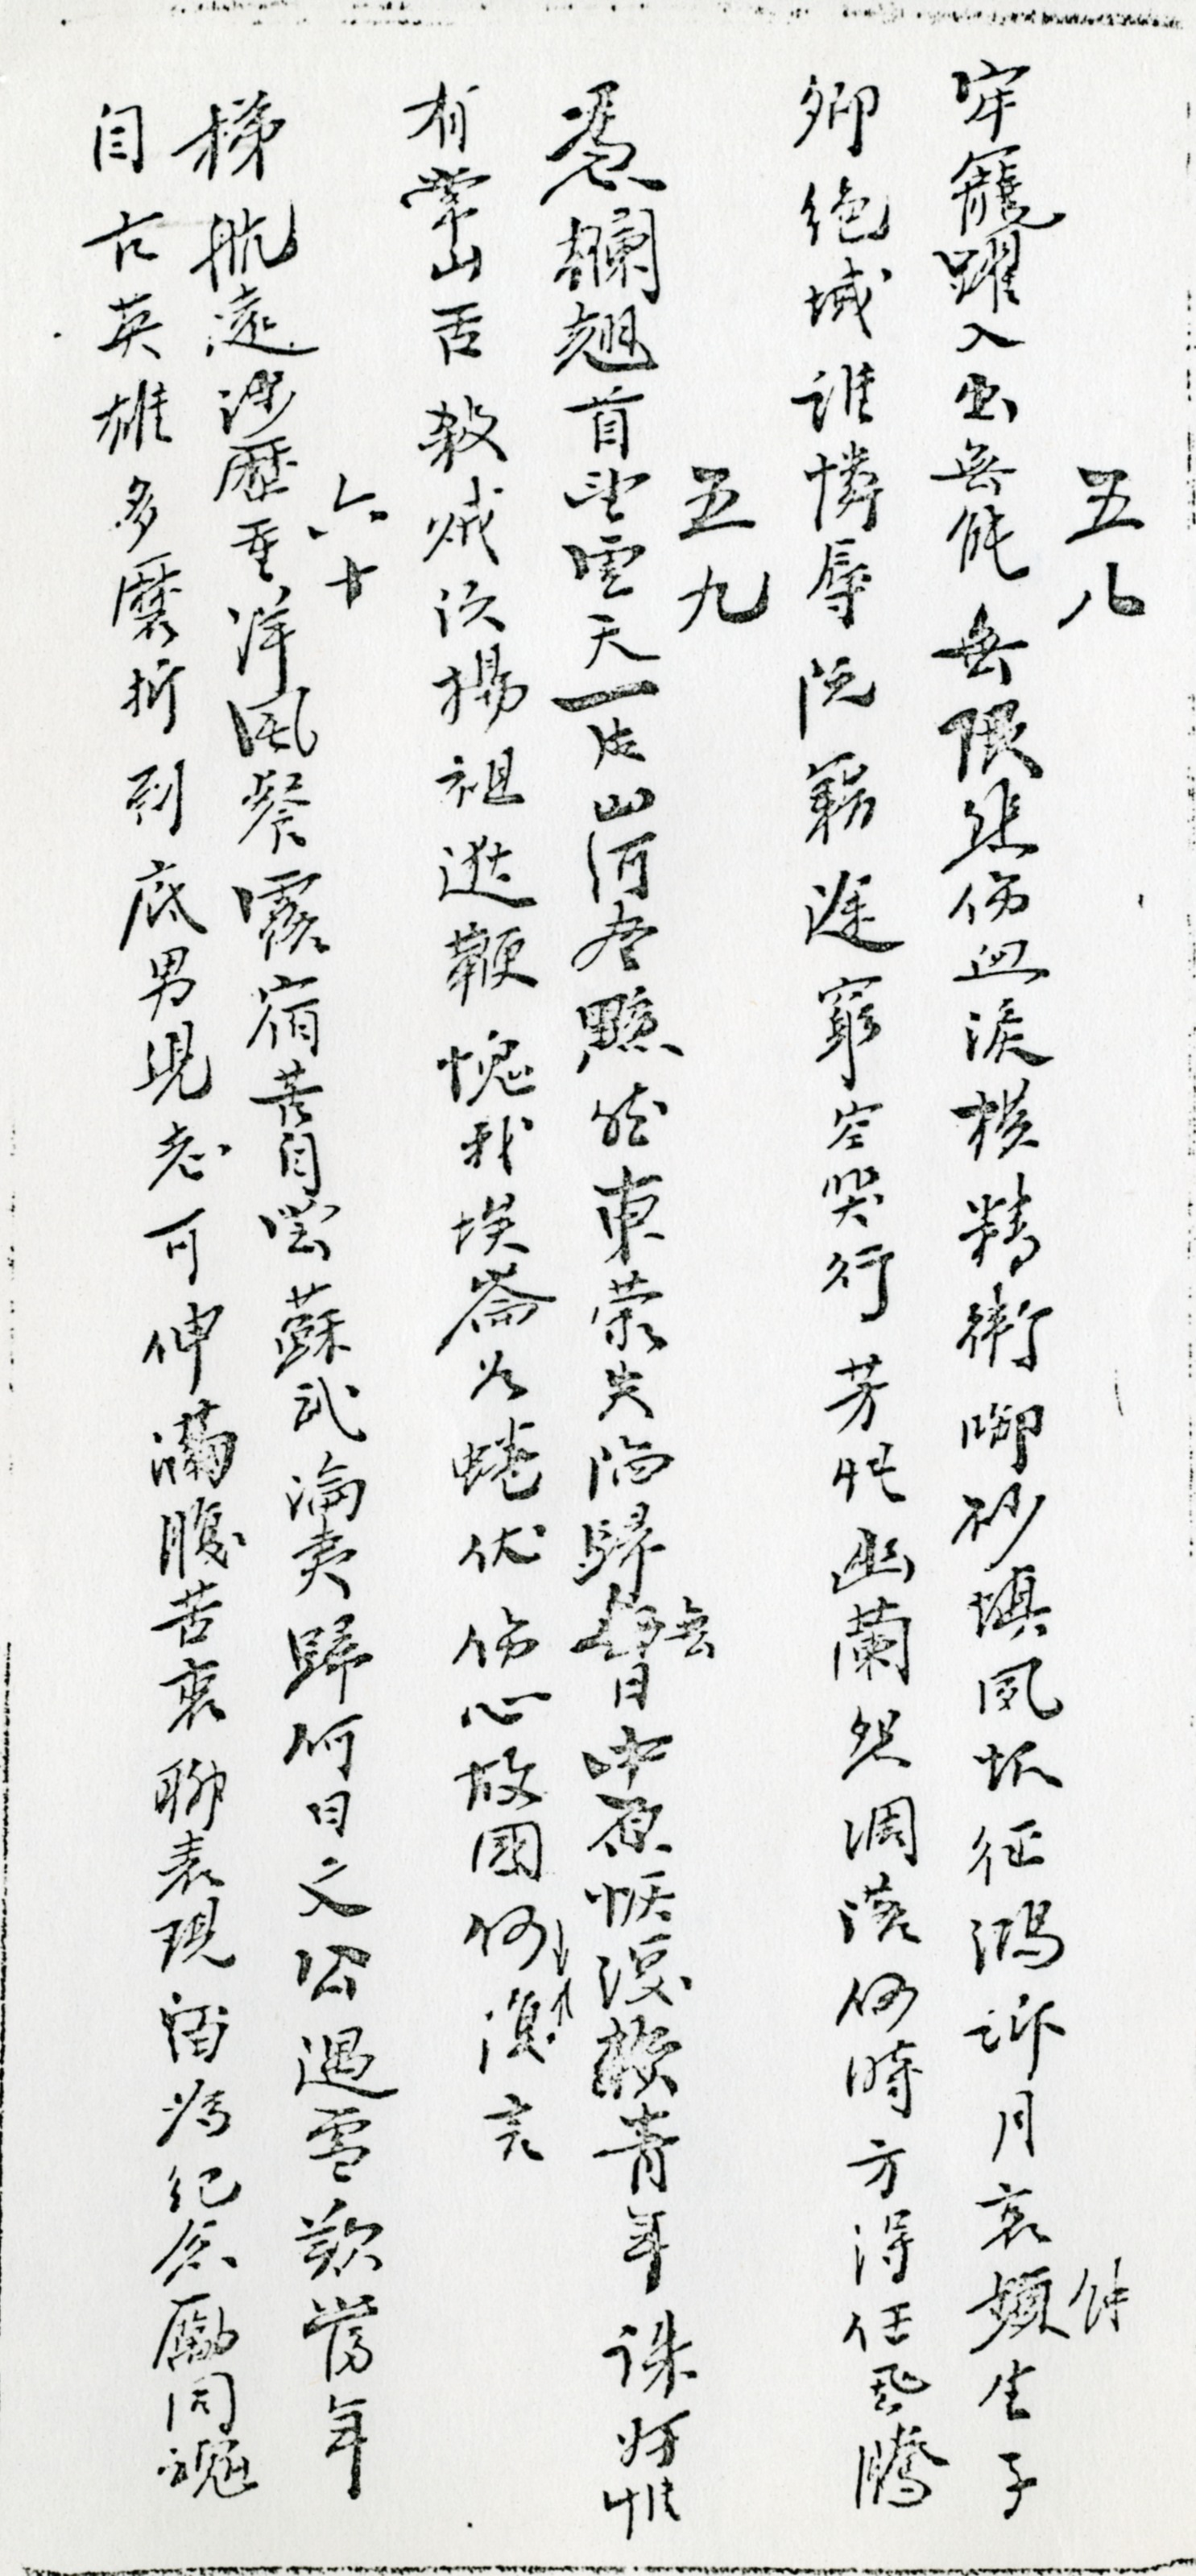 五八
牢籠躍入出無能無限悲傷血淚橫精衛啣砂填夙恨征鴻訴月哀頻生子
仲
卿絕域誰憐辱阮籍途窮空哭行芳性幽蘭怨凋落何時方得任飛騰
五九
憑欄翹首望雲天一片山河盡黯然東榮失陷歸督中原恢復賴青年誅奸惟
無日
有常山舌殺賊須揚祖逖鞭愧我埃崙為蜷伏傷心故國何復言
六十
梯航遠涉歷重洋風餐露宿苦自嘗蘇武淪夷歸何日文公遇雪歎當年
自古英雄多磨折到底男兒志可伸滿腹苦衷聊表現留為紀念勵同魂